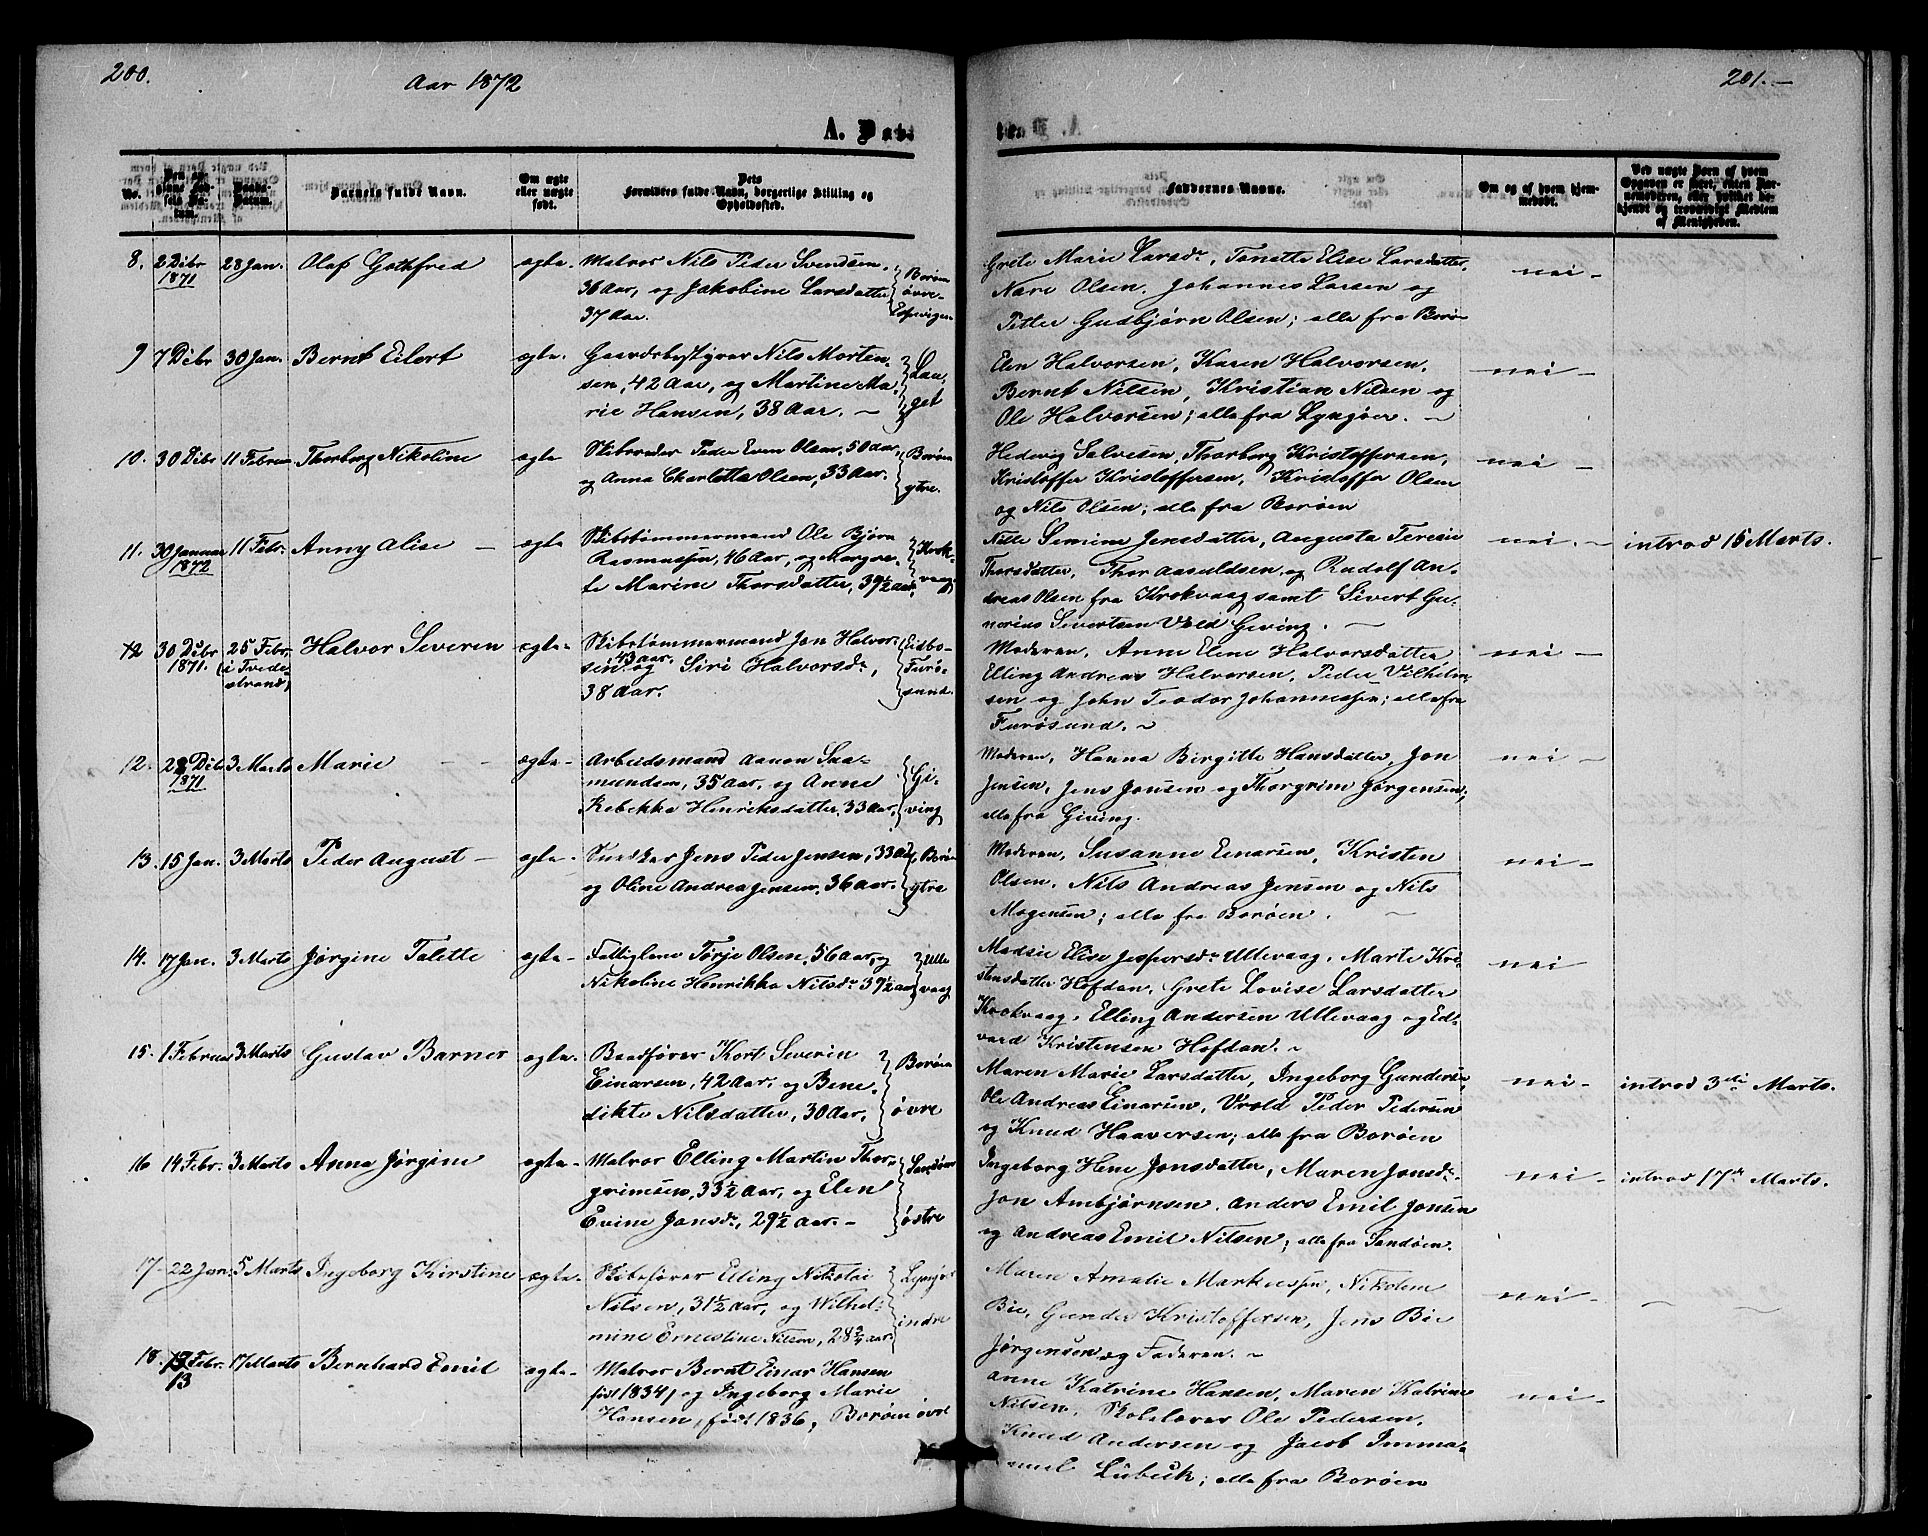 200.
Aar 1872
201.
A. Døbt
No.
Den opgivne Fødsels Datum.
Daabs-Datum.
Barnets fulde Navn.
Om ægte eller uægte født.
Dets Forældres fulde Navn, borgerlige Stilling og Opholdssted.
Faddernes Navne.
Om og af hvem hjemmedøbt.
Ved uægte Børn af hvem Opgaven er skeet, enten Barnemoderen, eller hvilket bekjendt og troværdigt Medlem af Menigheden.
8. 2 Debr 1871 28 Jan. Olaf Gothfred ægte.
Matros Nils Peder Svendsen,
36 Aar, og Jakobine Larsdatter
37 Aar.
Borøen øvre
Grete Marie Larsdr, Tanette Elise Larsdatter,
Nare Olsen, Johannes Larsen og
Petter Gudbjørn Olsen; alle fra Borø
nei -
9 7 Debr 30 Jan. Bernt Eilert ægte.
Gaardsbestyrer Nils Morten-
sen, 42 Aar, og Martine Ma-
rie Hansen, 38 Aar. -
Elen Halvorsen, Karen Halvorsen,
Bernt Nilsen, Kristian Nilsen og
Ole Halvorsen; alle fra Lyngøer. -
nei -
10. 30 Debr 11 Februar Thorborg Nikoline ægte
Skibsreder Peder Even Olsen, 50 aar,
og Anna Charlotte Olsen, 33 Aar.
Borøen ytre.
Hedevig Salvesen, Thorborg Kristoffersen,
Kristoffer Kristoffersen, Kristoffer Olsen
og Nils Olsen; alle fra Borøen
nei -
11. 30 Januar 1872 11 Febr. Anny Alise - ægte
Skibstømmermand Ole Bjørn
Rasmussen, 46 Aar, og Margre-
te Marine Thorsdatter, 39½ aar,
Krokvaag
Semine Jensdatter, Augusta Teresie
Thorsdatter, Thor Aasuldsen og Rudolf An-
dreas Olsen fra Krokvaag samt Sivert Gu-
nerius Sivertsen Vold Giving. -
nei. - introd 15 Marts.
12 30 Debr 1871. 25 Febr. (i Tvedestrand) Halvor Severen ægte -
Skibstømmermand Jon Halvor-
sen, 43 aar, og Siri Halvorsdr,
38 Aar.
Eidbo-Furøsund.
Moderen, Anne Elene Halvorsdatter
Elling Andreas Halvorsen, Peder Vilhelm-
sen og John Teodor Johannessen; alle fra
Furøsund. -
nei -
12. 28 Debr 1871 3 Marts Marie - - ægte -
Arbeidsmand Aanon Saa-
mundsen, 35 Aar, og Anne
Rebekka Henriksdatter, 33 Aar.
Giving
Moderen, Hanna Birgitte Hansdatter, Jon
Jensen, Jens Jonsen og Thorgrim Jørgensen;
alle fra Giving.
nei -
13. 15 Jan. 3 Marts Peder August - ægte -
Snedker Jens Peder Jensen, 33 Aar,
og Oline Andrea Jensen, 36 Aar.
Borøen ytre
Moderen, Susanne Einarsen, Kristen
Olsen, Nils Andreas Jensen og Nils
Mogensen; alle fra Borøen. -
nei -
14. 17 Jan. 3 Marts Jørgine Talette ægte -
Fattiglem Tørje Olsen, 56 Aar, og
Nikoline Henrikke Nilsdr 39½ aar
Ullevaag
Madsie Elise Jespersdr Ullevaag, Marte Kri-
stensdatter Hofdan, Grete Lovise Larsdatter
Krokvaag, Elling Andersen Ullevaag og Ed-
vard Kristensen Hofdan. -
nei
15. 1 Februar 3 Marts Gustav Barner ægte -
Baadfører Kort Severin
Einarsen, 42 Aar, og Bene-
dikte Nilsdatter, 30 Aar.
Borøen øvre
Maren Marie Larsdatter, Ingeborg Gunders
Ole Andreas Einarsen, Vrold Peder Pedersen
og Knud Haaversen; alle fra Borøen
nei - introd 3die Marts.
16 14 Febr. 3 Marts Anna Jørgine ægte -
Matros Elling Martin Thor-
grimsen, 33½ Aar, og Elen
Evine Jonsdr, 29½ Aar. -
Sandøen østre
Ingeborg Helene Jonsdatter, Maren Jonsdr.
Jon Ambjørnsen, Anders Emil Jonsen
og Andreas Emil Nilsen; alle fra Sandøen.
nei - introd 17de Marts.
17 - 22 Jan. 5 Marts Ingeborg Kirstine ægte -
Skibsfører Elling Nikolai
Nilsen, 31½ Aar, og Wilhel-
mine Ernestine Nilsen, 28¾ aar.
Lyngør indre
Maren Amalie Markussen, Nikoline
Bie, Gunder Kristoffersen, Jens Bie
Jørgensen og Faderen. -
nei -
18. 13 Febr. 17 Marts Bernhard Emil ægte -
Matros Bernt Einar Hansen
født 1834, og Ingeborg Marie
Hansen, født 1836, Borøen øvre
Anne Katrine Hansen, Maren Katrine
Nilsen, Skolelærer Ole Pedersen,
Knud Andersen og Jacob Imma-
nuel Lübeck; alle fra Borøen
nei -